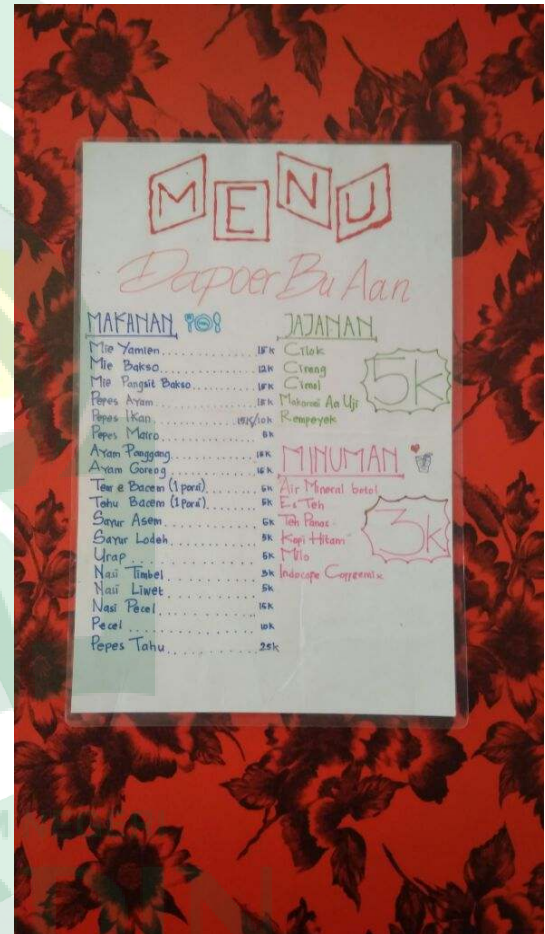 MENU
Dapoer Bu Aan
MAKANAN
Mie Yamien 15K
Mie Bakso 12K
Mie Pangsit Bakso 15K
Pepes Ayam 15K
Pepes Ikan
Pepes Mairo 5K
Ayam Panggang 15K
Ayam Goreng 15K
Bacem (1 porsi) 5K
Tahu Bacem (1 porsi) 5K
Sayur Asem 5K
Sayur Lodeh 5K
Urap 5K
Nasi Timbel 3K
Nasi Liwet 5K
Nasi Pecel 15K
Pecel 10K
Pepes Tahu 25K
JAJANAN
Cilok
Cireng
Cimol
Makaroni Aa Uji
Rempeyek
5K
MINUMAN
Air Mineral botol
Es Teh
Teh Panas
Kopi Hitam
Milo
Indocafe Coffeemix
3K